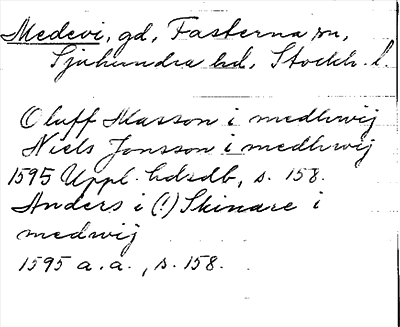 Medevi, gd, Fasterna sn,
Sjuhundra hd, Stockh. l.
Oluff Masson i medhwij
Niels Jonsson i medhwij
1595 Uppl. hdrdb, s. 158.
Anders i (!) Skinare i
medwij
1595 a. a., s. 158.